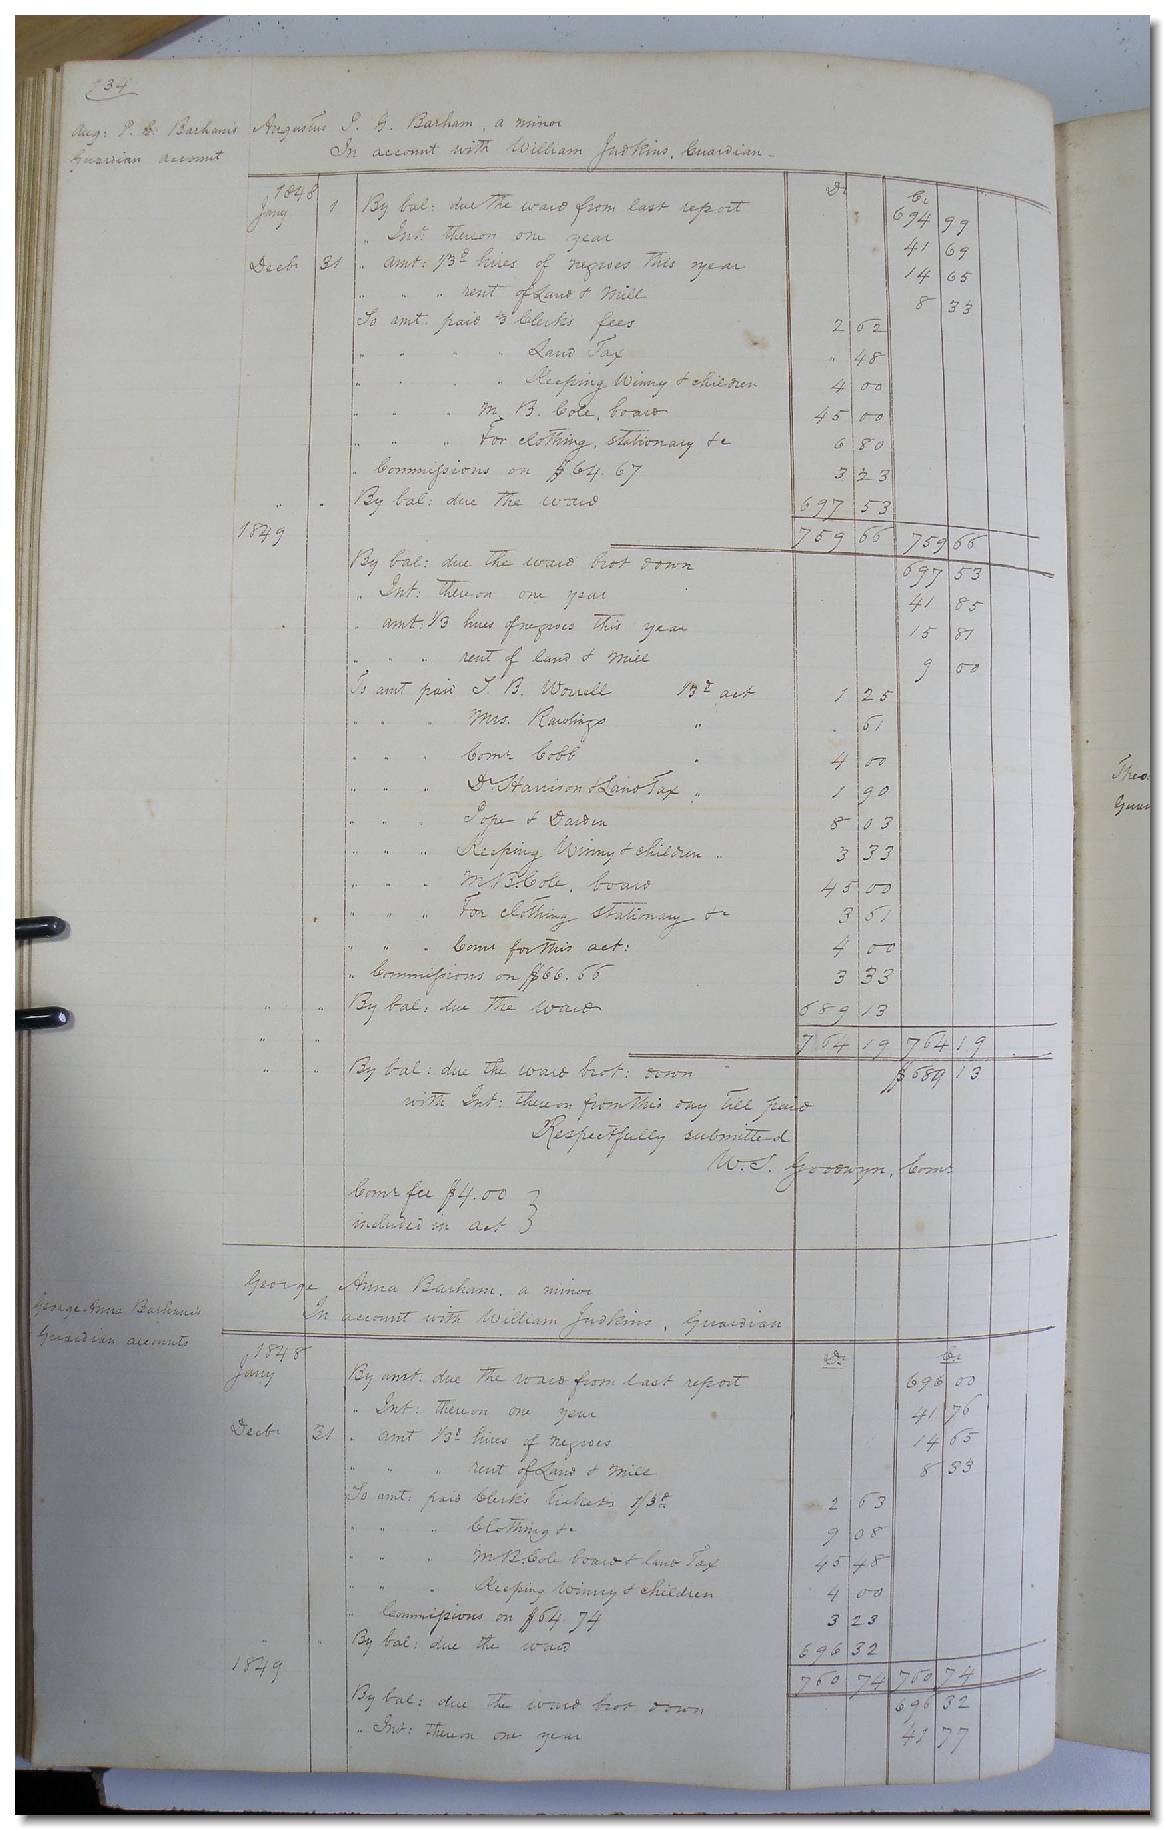 134
Aug: P. C. Barham's Augustus P. G. Barham, a minor
Guardian account In account with William Judkins, Guardian
Dr Cr
1848
Jany 1 By bal: due the ward from last report 694 99
" Int: thereon one year 41 69
Decbr 31 " amt: 1/3d hires of negroes this year 14 65
" " " rent of Land & Mill 8 33
To amt: paid 1/3 Clerks fees 2 62
" " " " Land Tax " 48
" " " " Keeping Winny & children 4 00
" " " M. B. Cole, board 45 00
" " " For clothing, stationary &c 6 80
" Commissions on $64.67 3 23
" " By bal: due the ward 697 53
1849 759 66 759 66
By bal: due the ward brot down 697 53
" Int: thereon one year 41 85
" amt: 1/3 hires of negroes this year 15 81
" " " rent of land & mill 9 00
To amt paid T. B. Worrell 1/3d act 1 25
" " " Mrs. Rawlings " " 61
" " " Comr Cobb " 4 00
" " " Dr Harrison & Land Tax " 1 90
" " Pope & Darden 8 03
" " " Keeping Winny & children " 3 33
" " " M B. Cole, board 45 00
" " " For clothing stationary &c 3 61
" " " Comr for this act: 4 00
" Commissions on $66.66 3 33
" " By bal: due the ward 689 13
" " 764 19 764 19
" " By bal: due the ward brot: down $689 13
with Int: thereon from this day till paid
Respectfully submitted
W. S. Goodwyn, Comr
Comr fee $4.00 }
included in act }
George Anna Barham, a minor
George Anna Barham's In account with William Judkins, Guardian
Guardian accounts
1848 Dr Cr
Jany By amt: due the ward from last report 696 00
" Int: thereon one year 41 76
Decbr 31 " amt 1/3d hires of negroes 14 65
" " " rent of Land & Mill 8 33
To amt: paid Clerks Tickets 1/3d 2 63
" " " Clothing &c 9 08
" " " M B. Cole board & land Tax 45 48
" " " Keeping Winny & children 4 00
" Commissions on $64.74 3 23
" " By bal: due the ward 696 32
1849 760 74 760 74
By bal: due the ward brot down 696 32
" Int: thereon one year 41 77
Theo:
Guar